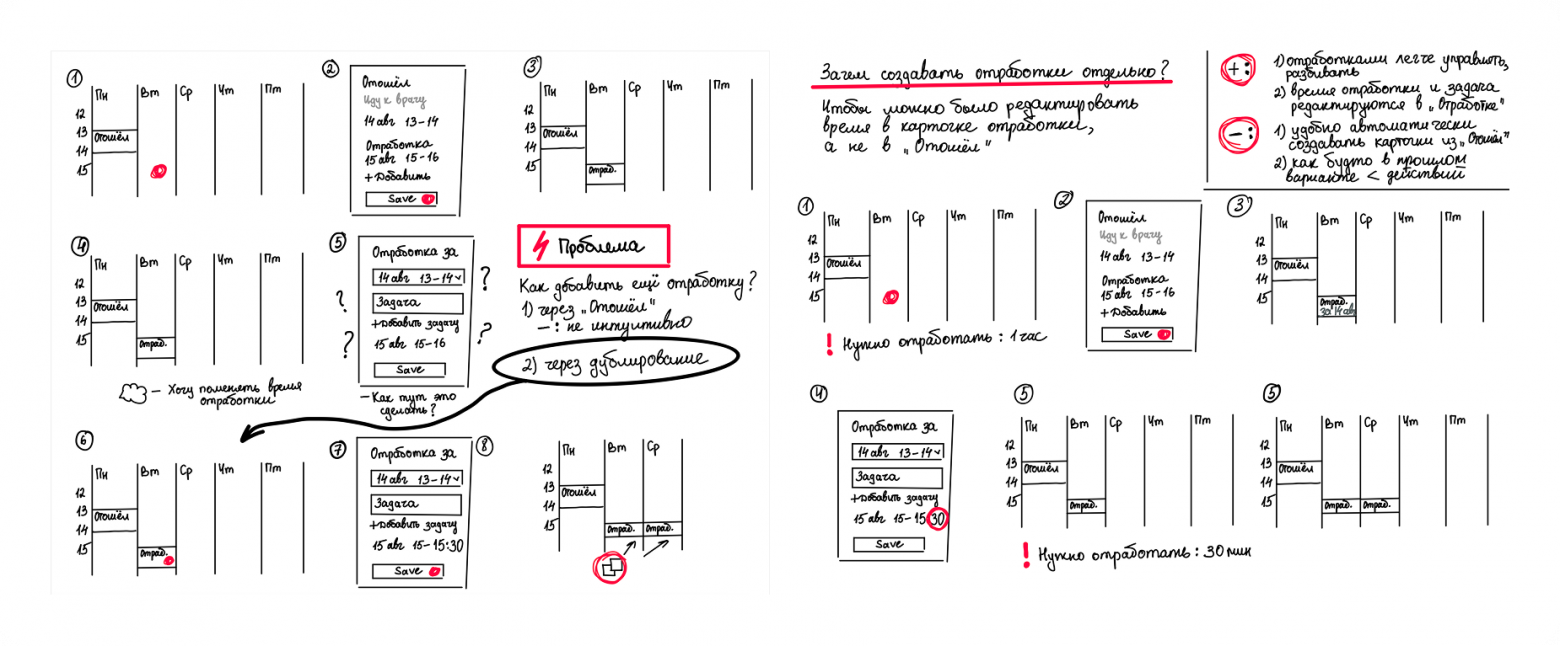 1
Пн Вт Ср Чт Пт
12
13 Отошёл
14
15
2
Отошёл
Иду к врачу
14 авг 13-14
Отработка
15 авг 15-16
+Добавить
Save
3
Пн Вт Ср Чт Пт
12
13 Отошёл
14
15
Отраб.
4
Пн Вт Ср Чт Пт
12
13 Отошёл
14
15
Отраб.
— Хочу поменять время
отработки
5
Отработка за
14 авг 13-14
Задача
+Добавить задачу
15 авг 15-16
Save
? ? ? ?
— Как тут это
сделать?
Проблема
Как добавить ещё отработку?
1) через „Отошёл"
— : не интуитивно
2) через дублирование
6
Пн Вт Ср Чт Пт
12
13 Отошёл
14
15
Отраб.
7
Отработка за
14 авг 13-14
Задача
+Добавить задачу
15 авг 15-15:30
Save
8
Пн Вт Ср
12
13 Отошёл
14
15
Отраб. Отраб.
Зачем создавать отработки отдельно?
Чтобы можно было редактировать
время в карточке отработки,
а не в „Отошёл"
+ :
1) отработками легче управлять,
разбивать
2) время отработки и задача
редактируются в „Отработке"
— :
1) удобно автоматически
создавать карточки из „Отошёл"
2) как будто в прошлом
варианте < действий
1
Пн Вт Ср Чт Пт
12
13 Отошёл
14
15
! Нужно отработать : 1 час
2
Отошёл
Иду к врачу
14 авг 13-14
Отработка
15 авг 15-16
+Добавить
Save
3
Пн Вт Ср Чт Пт
12
13 Отошёл
14
15
Отраб.
за 14 авг
4
Отработка за
14 авг 13-14
Задача
+Добавить задачу
15 авг 15-15 30
Save
5
Пн Вт Ср Чт Пт
12
13 Отошёл
14
15
Отраб.
! Нужно отработать : 30 мин
5
Пн Вт Ср Чт Пт
12
13 Отошёл
14
15
Отраб. Отраб.